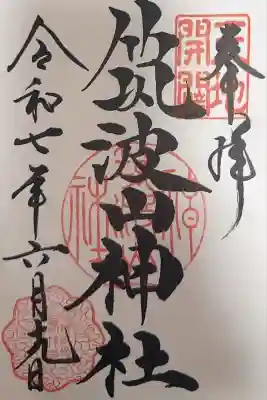 奉拝
天地開闢
筑波山神社
令和七年六月九日